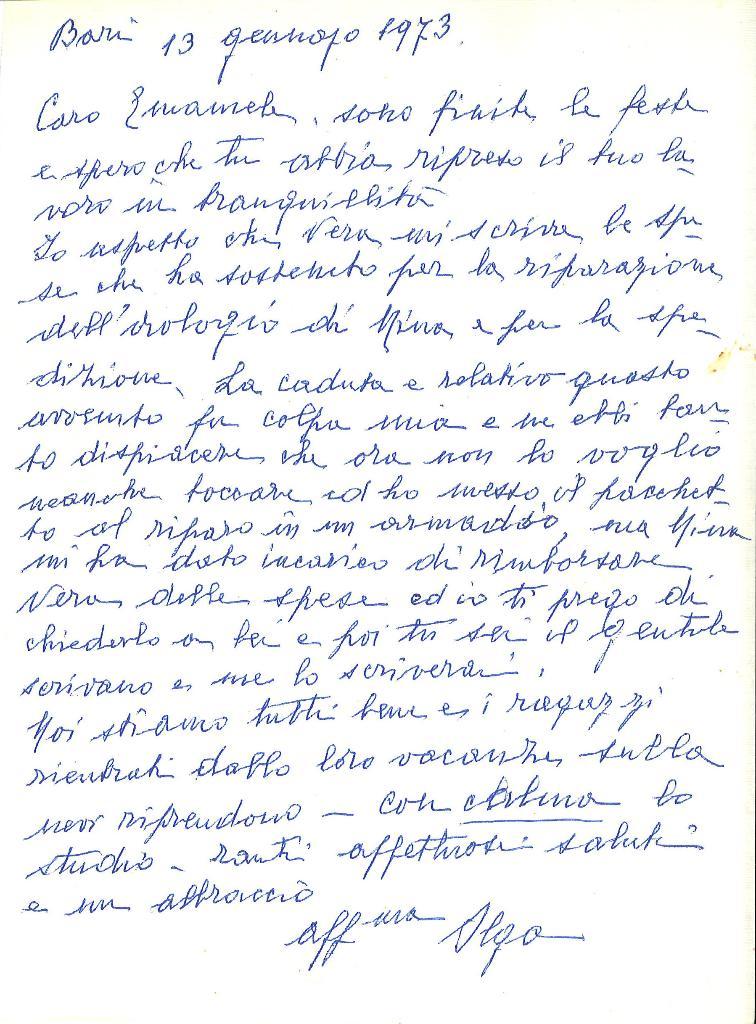 Bari 13 gennaio 1973.
Caro Emanuele, sono finite le feste
e spero che tu abbia ripreso il tuo la-
voro in tranquillità
Io aspetto che Vera mi scriva le spe-
se che ha sostenuto per la riparazione
dell'orologio di Nina e per la spe-
dizione. La caduta e relativo guasto
avvenuto fu colpa mia e ne ebbi tan-
to dispiacere che ora non lo voglio
neanche toccare ed ho messo il pacchet-
to al riparo in un armadio, ma Nina
mi ha dato incarico di rimborsare
Vera delle spese ed io ti prego di
chiederlo a lei e poi tu sei il gentile
scrivano e me lo scriverai.
Noi stiamo tutti bene e i ragazzi
rientrati dalle loro vacanze sulla
neve riprendono - con calma lo
studio - tanti affettuosi saluti
e un abbraccio
aff ma Olga